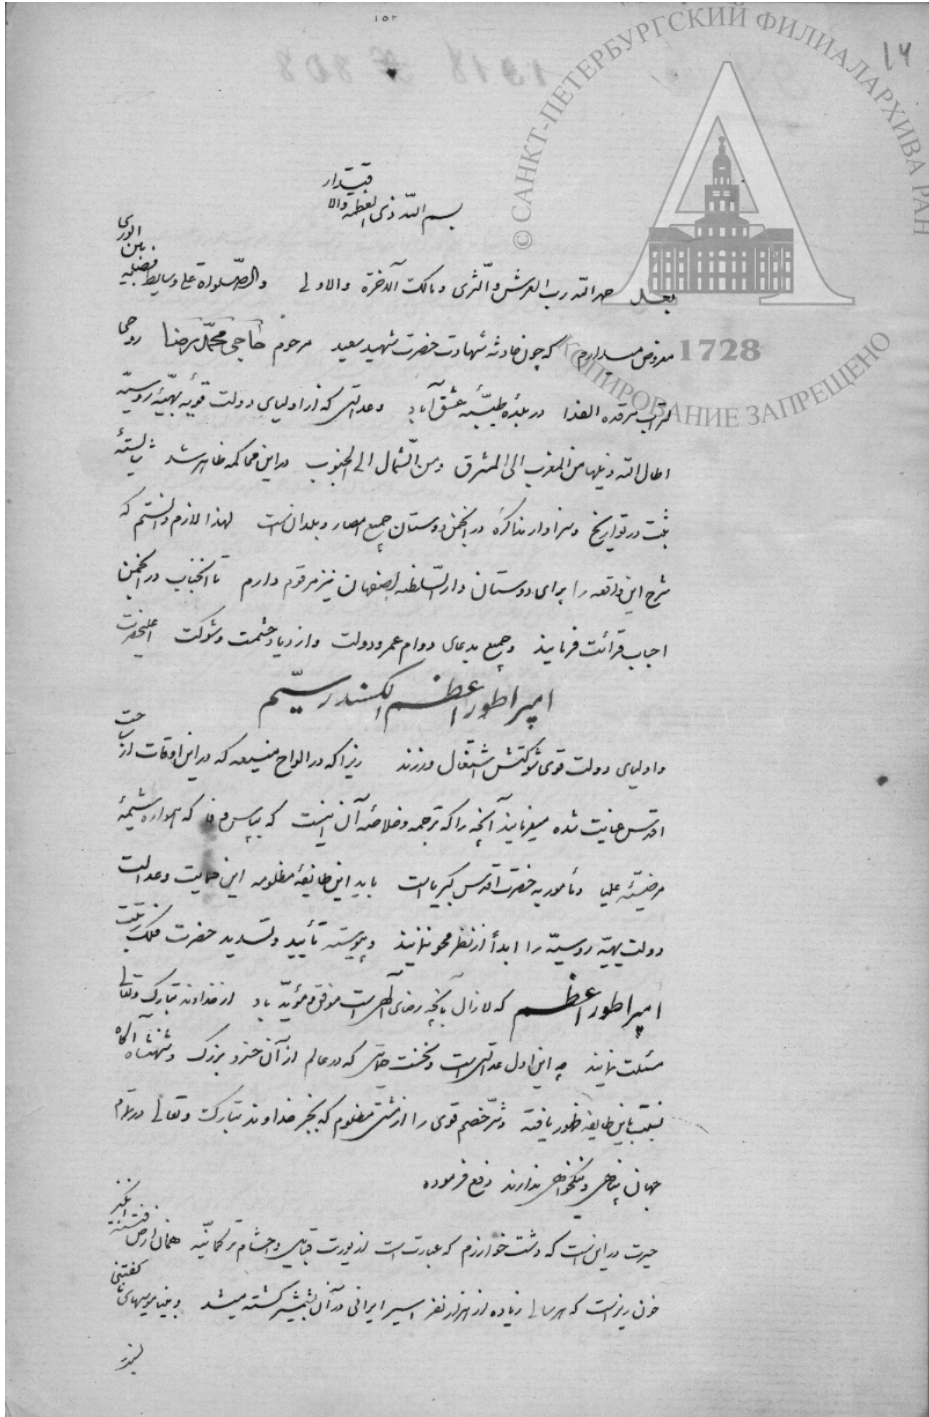 ۱۵۲
۱۴
© САНКТ-ПЕТЕРБУРГСКИЙ ФИЛИАЛ АРХИВА РАН
1728
КОПИРОВАНИЕ ЗАПРЕЩЕНО
بسم اللّه ذی العظمة والاقتدار
بعد حمد اللّه رب العرش والثری و مالک الآخرة والاولی والصلوة علی وسایط فیضه بین الوری
معروض میدارم که چون حادثه شهادت حضرت شهید سعید مرحوم حاجی محمّد رضا روحی
لتراب مرقده الفدا در بلدهٔ طیّبهٔ عشق آباد و عدالتی که از اولیای دولت قویّهٔ بهیّهٔ روسیّه
اطال اللّه ذیلها من المغرب الی المشرق و من الشّمال الی الجنوب در این محاکمه ظاهر شد شایستهٔ
ثبت در تواریخ و سزاوار مذاکره در انجمن دوستان جمیع امصار و بلدان است لهذا لازم دانستم که
شرح این واقعه را برای دوستان دار السّلطنه اصفهان نیز مرقوم دارم تا آنجناب در انجمن
احباب قرائت فرمایند و جمیع بدعای دوام عمر و دولت و ازدیاد حشمت و شوکت اعلیحضرت
امپراطور اعظم الکسندر سیّم
و اولیای دولت قوی شوکتش اشتغال ورزند زیرا که در الواح منیعه که در این اوقات از ساحت
اقدس عنایت شده میفرمایند آنچه را که ترجمه و خلاصهٔ آن اینست که بپاس وفا که همواره شیمهٔ
مرضیّهٔ علیا و مأمور به حضرت اقدس کبریاست باید این طایفهٔ مظلومه این حمایت و عدالت
دولت بهیّه روسیّه را ابداً از نظر محو ننمایند و پیوسته تأیید و تسدید حضرت فلک رتبت
امپراطور اعظم که لازال بآنچه رضای الهی است موفق و مؤیّد باد از خداوند تبارک و تعالی
مسئلت نمایند چه این اول عدالتی است و نخست حمایتی که در عالم از آن خسرو بزرگ و شهنشاه آگاه
نسبت باین طایفه ظهور یافته و شرّ خصم قوی را از مشتی مظلوم که بجز خداوند تبارک و تعالی در تمام
جهان پناهی و نیکخواهی ندارند دفع فرموده
حیرت در این است که دشت خوارزم که عبارت است از یورت قبایل و احشام ترکمانیّه همان ارض فتنه انگیز
خون ریز است که هر سالی زیاده از هزار نفر اسیر ایرانی در آن بشمشیر کشته میشد